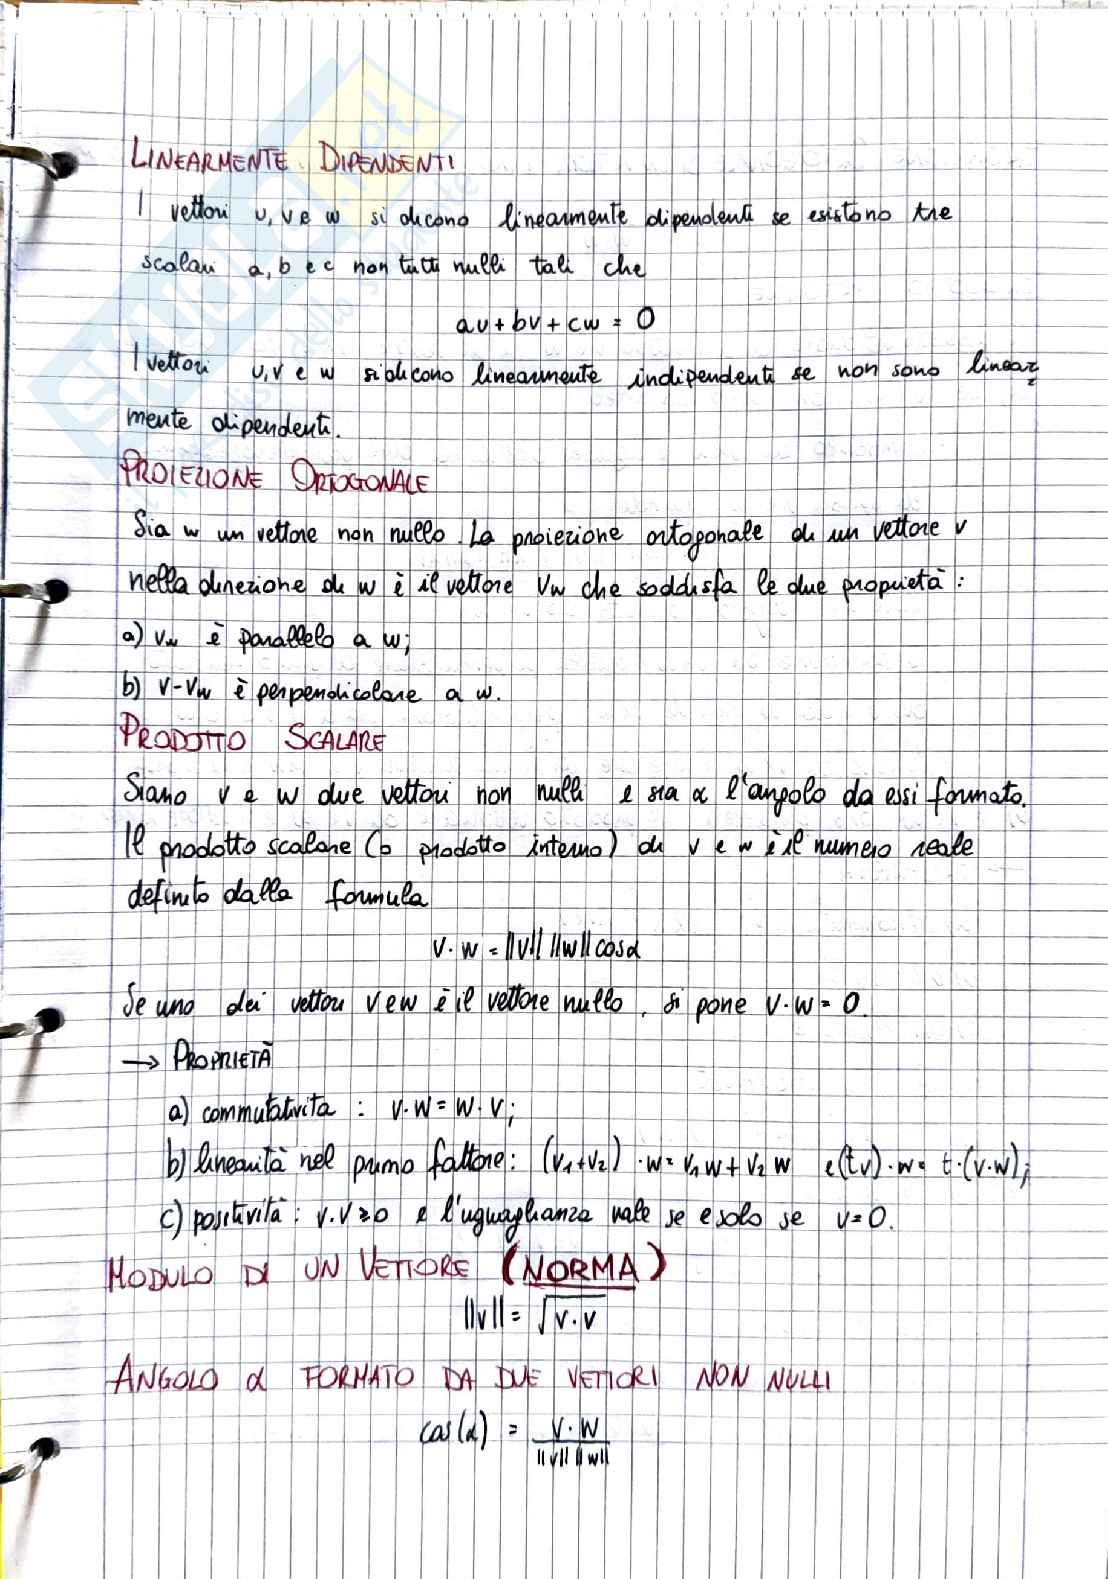 LINEARMENTE DIPENDENTI
I vettori u, v e w si dicono linearmente dipendenti se esistono tre
scalari a, b e c non tutti nulli tali che
au + bv + cw = 0
I vettori u, v e w si dicono linearmente indipendenti se non sono linear
mente dipendenti.
PROIEZIONE ORTOGONALE
Sia w un vettore non nullo. La proiezione ortogonale di un vettore v
nella direzione di w è il vettore Vw che soddisfa le due proprietà:
a) Vw è parallelo a w;
b) V-Vw è perpendicolare a w.
PRODOTTO SCALARE
Siano v e w due vettori non nulli e sia α l'angolo da essi formato.
Il prodotto scalare (o prodotto interno) di v e w è il numero reale
definito dalla formula
v · w = ||v|| ||w|| cosα
Se uno dei vettori v e w è il vettore nullo, si pone v · w = 0.
→ PROPRIETÀ
a) commutatività : v · w = w · v;
b) linearità nel primo fattore: (v₁+v₂) · w = v₁ w + v₂ w e (tv) · w = t · (v·w);
c) positività: v · v ≥ 0 e l'uguaglianza vale se e solo se v = 0.
MODULO DI UN VETTORE (NORMA)
||v|| = √v · v
ANGOLO α FORMATO DA DUE VETTORI NON NULLI
cos(α) = v · w / ||v|| ||w||